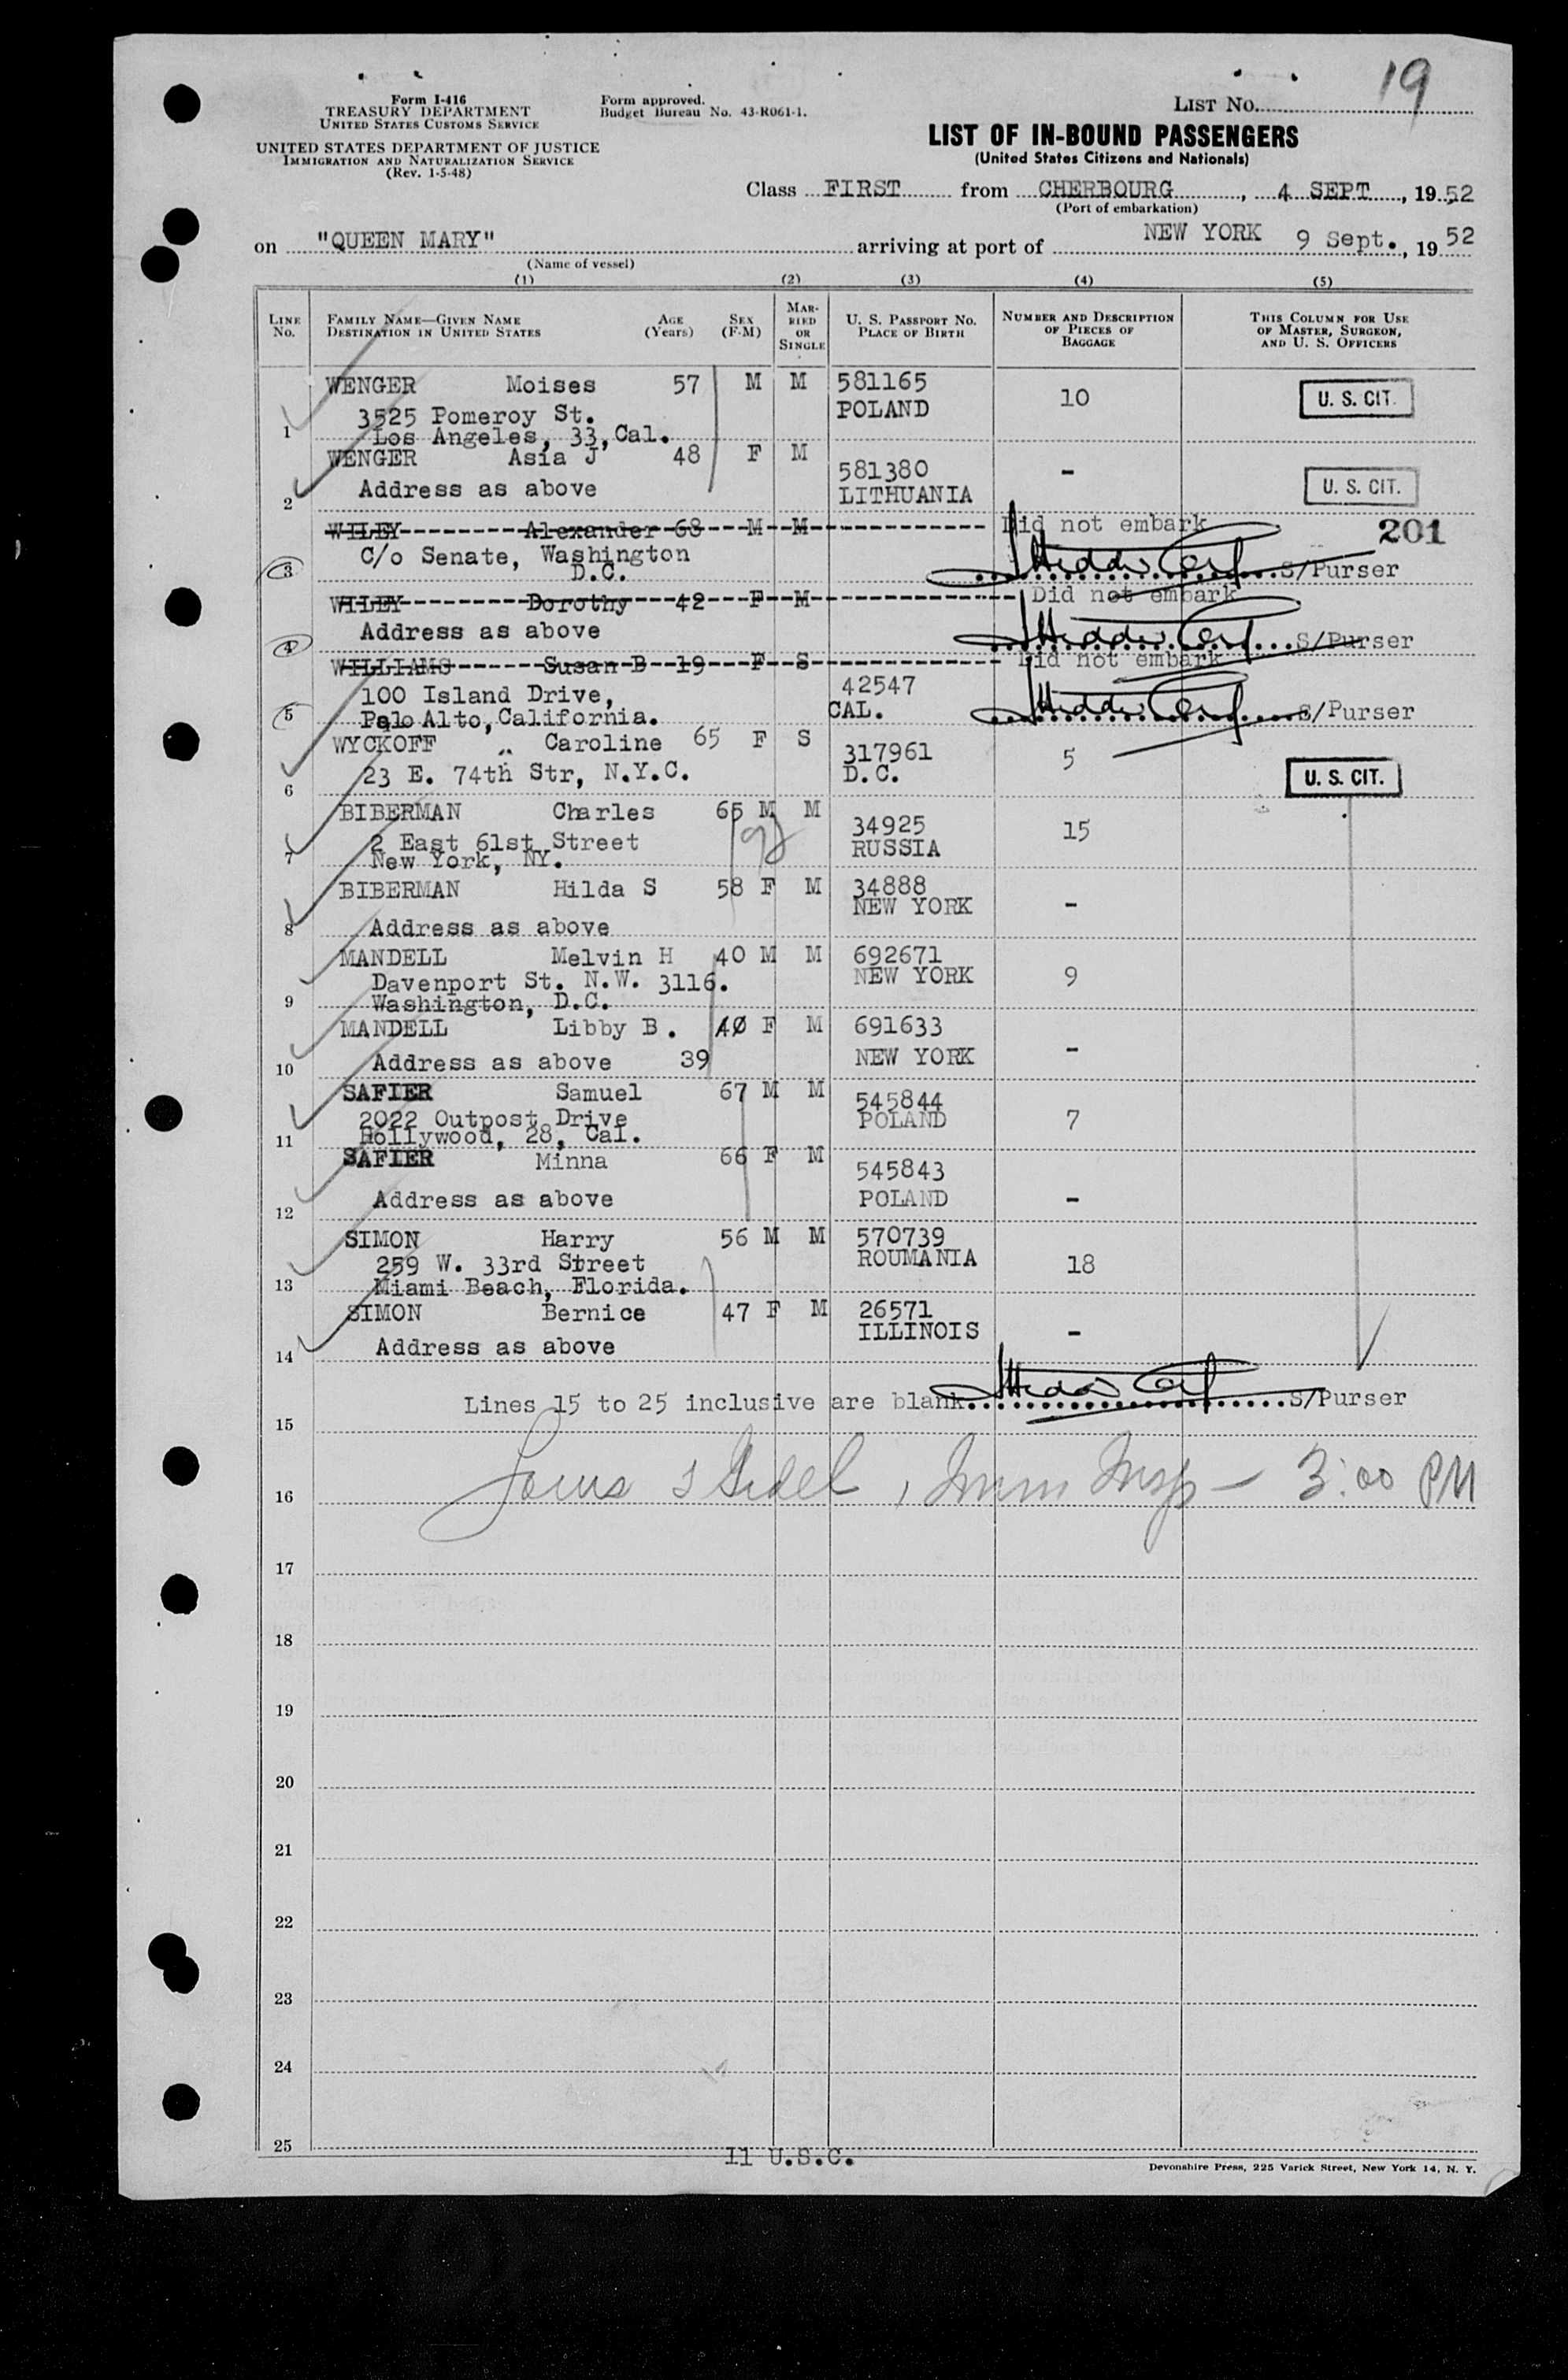 19
Form I-416
TREASURY DEPARTMENT
UNITED STATES CUSTOMS SERVICE
UNITED STATES DEPARTMENT OF JUSTICE
IMMIGRATION AND NATURALIZATION SERVICE
(Rev. 1-5-48)
Form approved.
Budget Bureau No. 43-R061-1.
LIST NO.
LIST OF IN-BOUND PASSENGERS
(United States Citizens and Nationals)
Class FIRST from CHERBOURG, 4 SEPT, 1952
(Port of embarkation)
on "QUEEN MARY" arriving at port of NEW YORK 9 Sept., 1952
(Name of vessel)
(1) (2) (3) (4) (5)
LINE NO. FAMILY NAME—GIVEN NAME DESTINATION IN UNITED STATES AGE (Years) SEX (F-M) MARRIED OR SINGLE U. S. PASSPORT NO. PLACE OF BIRTH NUMBER AND DESCRIPTION OF PIECES OF BAGGAGE THIS COLUMN FOR USE OF MASTER, SURGEON, AND U. S. OFFICERS
WENGER Moises 57 M M 581165 10 U. S. CIT.
3525 Pomeroy St. POLAND
1 Los Angeles, 33, Cal.
WENGER Asia J 48 F M 581380 - U. S. CIT.
2 Address as above LITHUANIA
WILEY Alexander 68 M M Did not embark 201
C/o Senate, Washington
3 D.C. S/Purser
WILEY Dorothy 42 F M Did not embark
4 Address as above S/Purser
WILLIAMS Susan B 19 F S Did not embark
100 Island Drive, 42547
5 Palo Alto, California. CAL. S/Purser
WYCKOFF Caroline 65 F S 317961 5 U. S. CIT.
6 23 E. 74th Str, N.Y.C. D.C.
BIBERMAN Charles 65 M M 34925 15
2 East 61st Street RUSSIA
7 New York, NY.
BIBERMAN Hilda S 58 F M 34888 -
NEW YORK
8 Address as above
MANDELL Melvin H 40 M M 692671 9
Davenport St. N.W. 3116. NEW YORK
9 Washington, D.C.
MANDELL Libby B. 40 F M 691633 -
10 Address as above 39 NEW YORK
SAFIER Samuel 67 M M 545844 7
2022 Outpost Drive POLAND
11 Hollywood, 28, Cal.
SAFIER Minna 66 F M 545843 -
12 Address as above POLAND
SIMON Harry 56 M M 570739 18
259 W. 33rd Street ROUMANIA
13 Miami Beach, Florida.
SIMON Bernice 47 F M 26571 -
ILLINOIS
14 Address as above
Lines 15 to 25 inclusive are blank. S/Purser
15
16 Imm Insp - 3:00 PM
17
18
19
20
21
22
23
24
25
11 U.S.C.
Devonshire Press, 225 Varick Street, New York 14, N. Y.